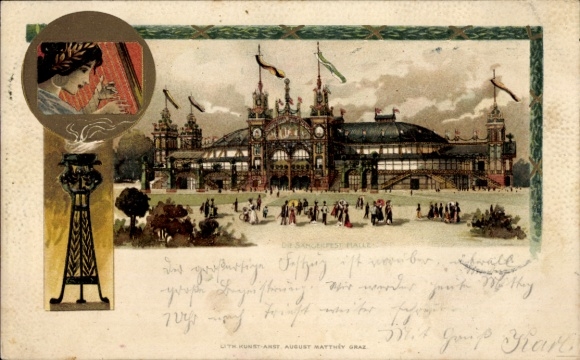 DIE SÄNGERFEST-HALLE
Der großartige Festzug ist vorüber, überall
große Begeisterung. Wir werden heute Mittag
nach weiter
Mit Gruß Karl
LITH. KUNST-ANST. AUGUST MATTHEY GRAZ.